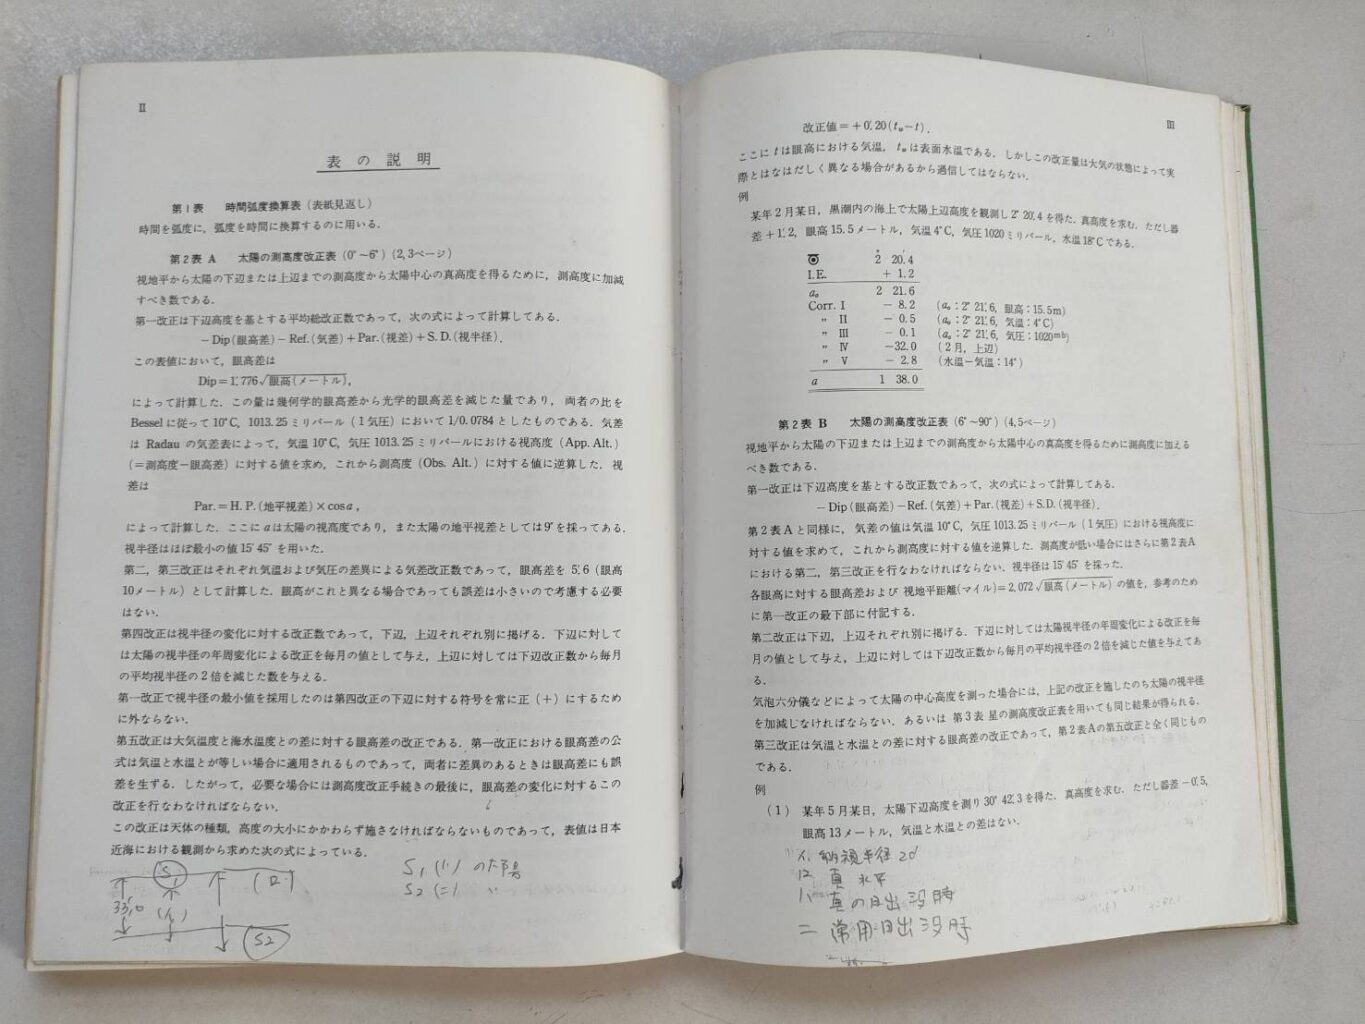 II
表の説明
第1表 時間弧度換算表(表紙見返し)
時間を弧度に,弧度を時間に換算するのに用いる.
第2表 A 太陽の測高度改正表(0°~6°)(2,3ページ)
視地平から太陽の下辺または上辺までの測高度から太陽中心の真高度を得るために,測高度に加減
すべき数である.
第一改正は下辺高度を基とする平均総改正数であって,次の式によって計算してある.
−Dip(眼高差)−Ref.(気差)+Par.(視差)+S.D.(視半径).
この表値において,眼高差は
Dip=1′.776√眼高(メートル),
によって計算した.この量は幾何学的眼高差から光学的眼高差を減じた量であり,両者の比を
Besselに従って10°C,1013.25ミリバール(1気圧)において1/0.0784としたものである.気差
は Radau の気差表によって,気温10°C,気圧1013.25ミリバールにおける視高度(App.Alt.)
(=測高度−眼高差)に対する値を求め,これから測高度(Obs.Alt.)に対する値に逆算した.視
差は
Par.=H.P.(地平視差)×cosa,
によって計算した.ここにaは太陽の視高度であり,また太陽の地平視差としては9″を採ってある.
視半径はほぼ最小の値15′45″を用いた.
第二,第三改正はそれぞれ気温および気圧の差異による気差改正数であって,眼高差を5′.6(眼高
10メートル)として計算した.眼高がこれと異なる場合であっても誤差は小さいので考慮する必要
はない.
第四改正は視半径の変化に対する改正数であって,下辺,上辺それぞれ別に掲げる.下辺に対して
は太陽の視半径の年周変化による改正を毎月の値として与え,上辺に対しては下辺改正数から毎月
の平均視半径の2倍を減じた数を与える.
第一改正で視半径の最小値を採用したのは第四改正の下辺に対する符号を常に正(+)にするため
に外ならない.
第五改正は大気温度と海水温度との差に対する眼高差の改正である.第一改正における眼高差の公
式は気温と水温とが等しい場合に適用されるものであって,両者に差異のあるときは眼高差にも誤
差を生ずる.したがって,必要な場合には測高度改正手続きの最後に,眼高差の変化に対するこの
改正を行なわなければならない.
この改正は天体の種類,高度の大小にかかわらず施さなければならないものであって,表値は日本
近海における観測から求めた次の式によっている.
S1 (イ) の太陽
S2 (ニ) 〃
S1
(ロ)
33′.0
S2
III
改正値=+0′.20(tw−t).
ここにtは眼高における気温,twは表面水温である.しかしこの改正量は大気の状態によって実
際とはなはだしく異なる場合があるから過信してはならない.
例
某年2月某日,黒潮内の海上で太陽上辺高度を観測し2°20′.4を得た.真高度を求む.ただし器
差+1′.2,眼高15.5メートル,気温4°C,気圧1020ミリバール,水温18°Cである.
2° 20′.4
I.E. + 1.2
ao 2 21.6
Corr. I − 8.2 (ao:2°21′.6,眼高:15.5m)
〃 II − 0.5 (ao:2°21′.6,気温:4°C)
〃 III − 0.1 (ao:2°21′.6,気圧:1020mb)
〃 IV −32.0 (2月,上辺)
〃 V − 2.8 (水温−気温:14°)
a 1 38.0
第2表 B 太陽の測高度改正表(6°~90°)(4,5ページ)
視地平から太陽の下辺または上辺までの測高度から太陽中心の真高度を得るために測高度に加える
べき数である.
第一改正は下辺高度を基とする改正数であって,次の式によって計算してある.
−Dip(眼高差)−Ref.(気差)+Par.(視差)+S.D.(視半径).
第2表Aと同様に,気差の値は気温10°C,気圧1013.25ミリバール(1気圧)における視高度に
対する値を求めて,これから測高度に対する値を逆算した.測高度が低い場合にはさらに第2表A
における第二,第三改正を行なわなければならない.視半径は15′45″を採った.
各眼高に対する眼高差および視地平距離(マイル)=2.072√眼高(メートル)の値を,参考のため
に第一改正の最下部に付記する.
第二改正は下辺,上辺それぞれ別に掲げる.下辺に対しては太陽視半径の年周変化による改正を毎
月の値として与え,上辺に対しては下辺改正数から毎月の平均視半径の2倍を減じた値を与えてあ
る.
気泡六分儀などによって太陽の中心高度を測った場合には,上記の改正を施したのち太陽の視半径
を加減しなければならない.あるいは第3表 星の測高度改正表を用いても同じ結果が得られる.
第三改正は気温と水温との差に対する眼高差の改正であって,第2表Aの第五改正と全く同じもの
である.
例
(1) 某年5月某日,太陽下辺高度を測り30°42′.3を得た.真高度を求む.ただし器差−0′.5,
眼高13メートル,気温と水温との差はない.
視半径 20′
ロ 真水平
ハ 真の日出没時
ニ 常用日出没時